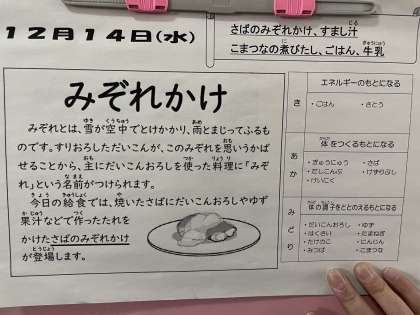 12月14日(水)
さばのみぞれかけ、すまし汁
こまつなの煮びたし、ごはん、牛乳
みぞれかけ
みぞれとは、雪が空中でとけかかり、雨とまじってふるも
のです。すりおろしただいこんが、このみぞれを思いうかば
せることから、主にだいこんおろしを使った料理に「みぞ
れ」という名前がつけられます。
今日の給食では、焼いたさばにだいこんおろしやゆず
果汁などで作ったたれを
かけたさばのみぞれかけ
が登場します。
き
エネルギーのもとになる
・ごはん ・さとう
あか
体をつくるもとになる
・ぎゅうにゅう ・さば
・だしこんぶ ・けずりぶし
・けいにく
みどり
体の調子をととのえるもとになる
・だいこんおろし ・ゆず
・はくさい ・たまねぎ
・たけのこ ・にんじん
・みつば ・こまつな